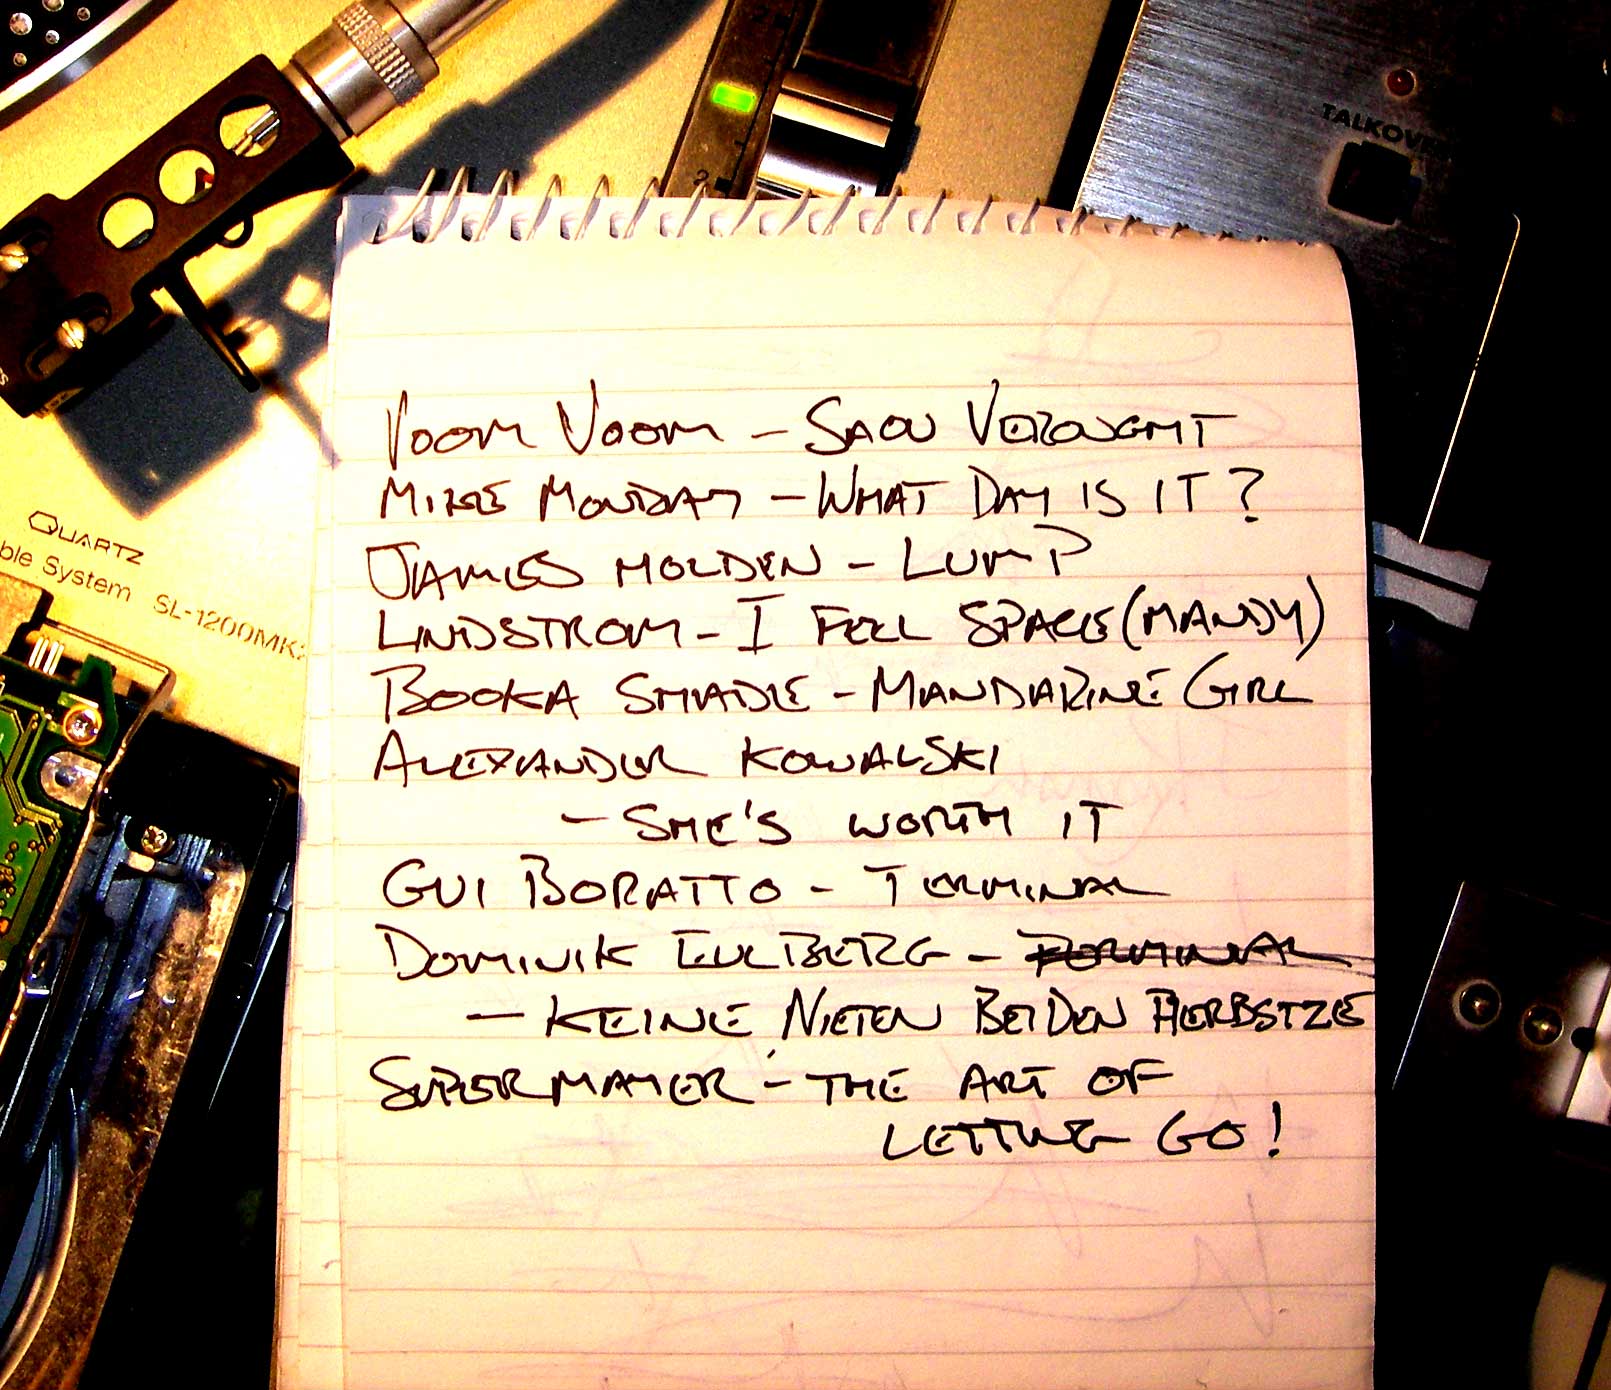 TALKOVE
2
VOOM VOOM - SAOU VEROUGMT
MIKE MONDAY - WHAT DAY IS IT?
QUARTZ
JAMES HOLDEN - LUMP
ble System SL-1200MK2
LINDSTROM - I FEEL SPACE (MANDY)
BOOKA SHADE - MANDARINE GIRL
ALEXANDER KOWALSKI
- SHE'S WORTH IT
GUI BORATTO - TERMINAL
DOMINIK EULBERG - TERMINAL
- KEINE NIETEN BEI DEN HERBSTZE
SUPERMAYER - THE ART OF
LETTING GO!